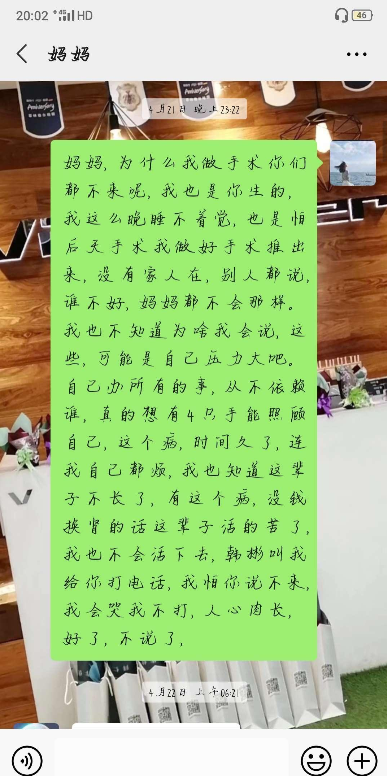 20:02
4G
HD
46
妈妈
4月21日 晚上23:22
妈妈，为什么我做手术你们
都不来呢，我也是你生的，
我这么晚睡不着觉，也是怕
后天手术我做好手术推出
来，没有家人在，别人都说，
谁不好，妈妈都不会那样。
我也不知道为啥我会说，这
些，可能是自己压力大吧。
自己办所有的事，从不依赖
谁，真的想有4只手能照顾
自己，这个病，时间久了，连
我自己都烦，我也知道这辈
子不长了，有这个病，没钱
换肾的话这辈子活的苦了，
我也不会活下去，韩彬叫我
给你打电话，我怕你说不来，
我会哭我不打，人心肉长，
好了，不说了，
4月22日 上午06:21